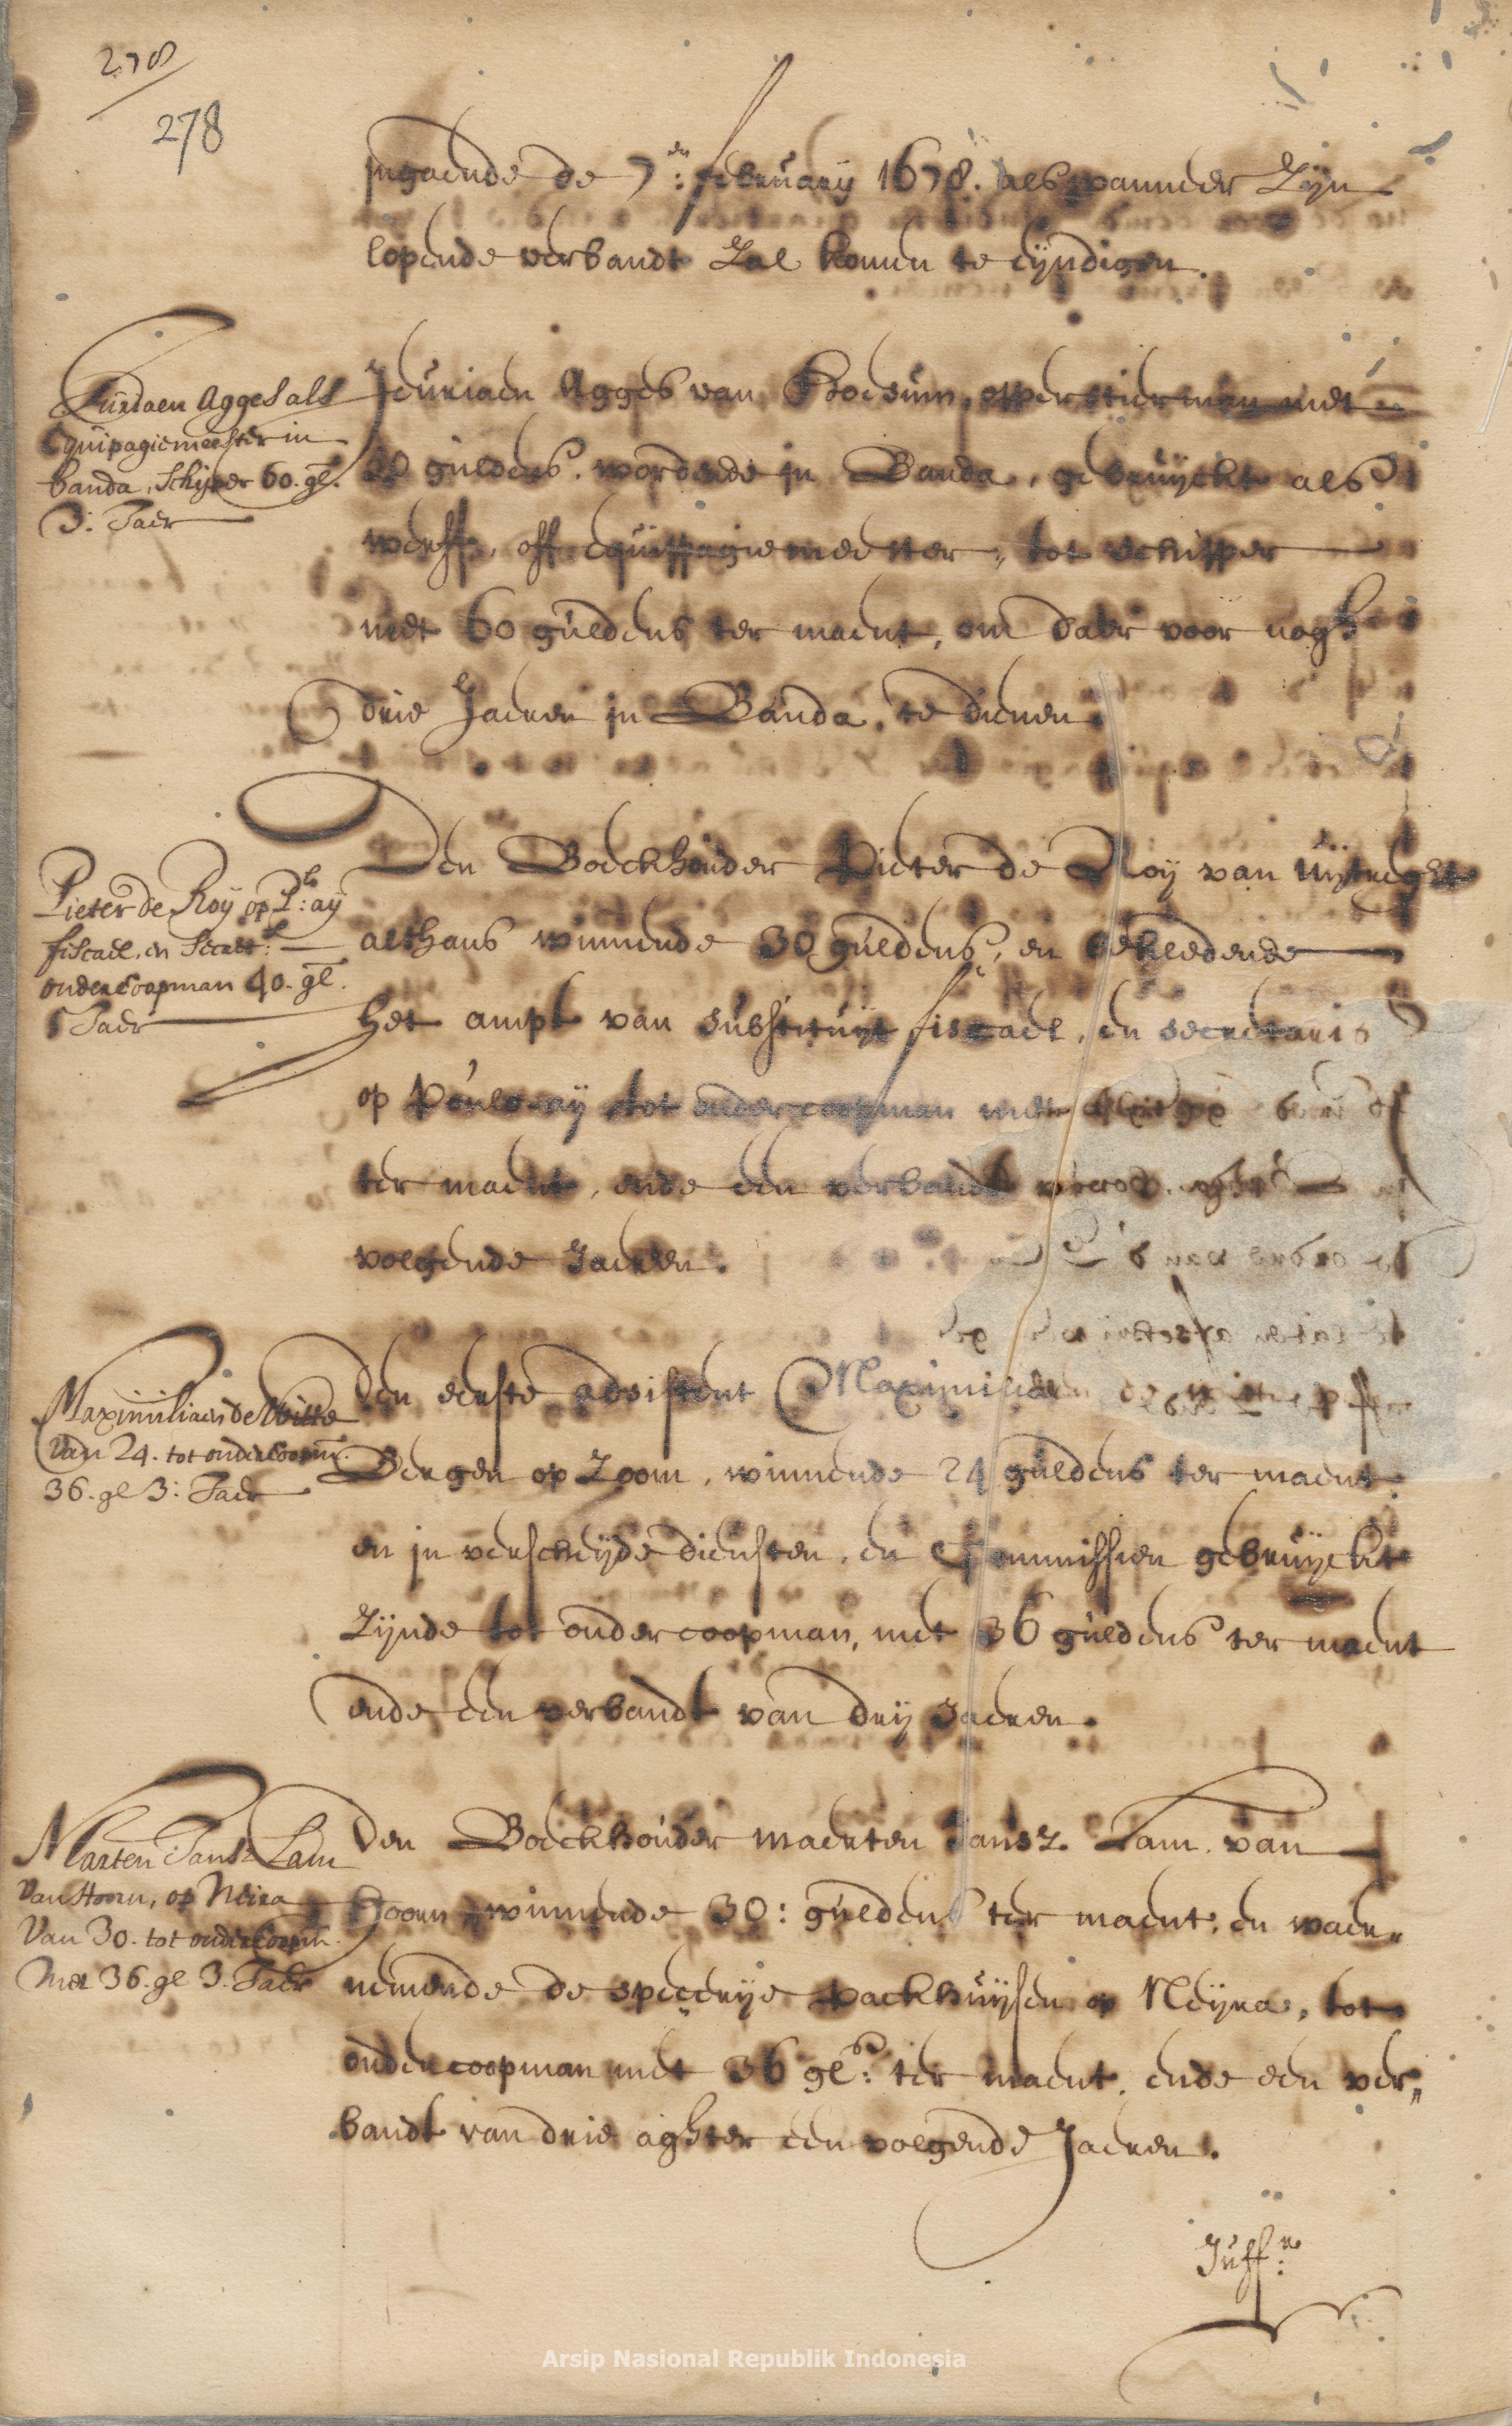 278
278
jngaende de 7:en february 1678. als wanneer Zijn
lopende verbandt Zal komen te eijndigen.
Juriaen Agges als
Equipagiemeester in
banda, Schipper 60. gl.
3: Jaer
Jeuriaen Agges van opperstierman met
guldens. wordende in Banda, gebruijckt als
werff, off equippagiemeester, tot schipper
met 60 guldens ter maent, om daer voor nogh
drie Jaeren in Banda, te dienen.
Pieter de Roij op P:o aij
fiscael, en Secrt:s
ondercoopman 40. gl.
Jaer
Den Boeckhouder Pieter de Roij van Uijtreght
althans winnende 30 guldens, en bekledende
het ampt van substituijt fiscael, en secretaris
op Poulo-aij tot ondercoopman met
ter maent, ende een verbandt
volgende Jaeren.
Maximiliaen de Witte
van 24. tot ondercoopm.
36. gl 3: Jaer
Den eerste adsistent Maximiliaen de Witte
Bergen op Zoom, winnende 24 guldens ter maent
en in verscheijde diensten, en Commissien gebruijckt
Zijnde tot ondercoopman, met 36 guldens ter maent
ende een verbandt van drij Jaeren.
Marten Jansz Lam
van Hoorn, op Neira
Van 30. tot ondercoopm.
Met 36. gl 3. Jaer
Den Boeckhouder Maerten Jansz. Lam. van
Hoorn, winnende 30: guldens ter maent, en waer„
nemende de specerije packhuijsen op Neijra, tot
ondercoopman met 36 gl:s ter maent, ende een ver„
bandt van drie aghter een volgende Jaeren.
Juff:re
Arsip Nasional Republik Indonesia